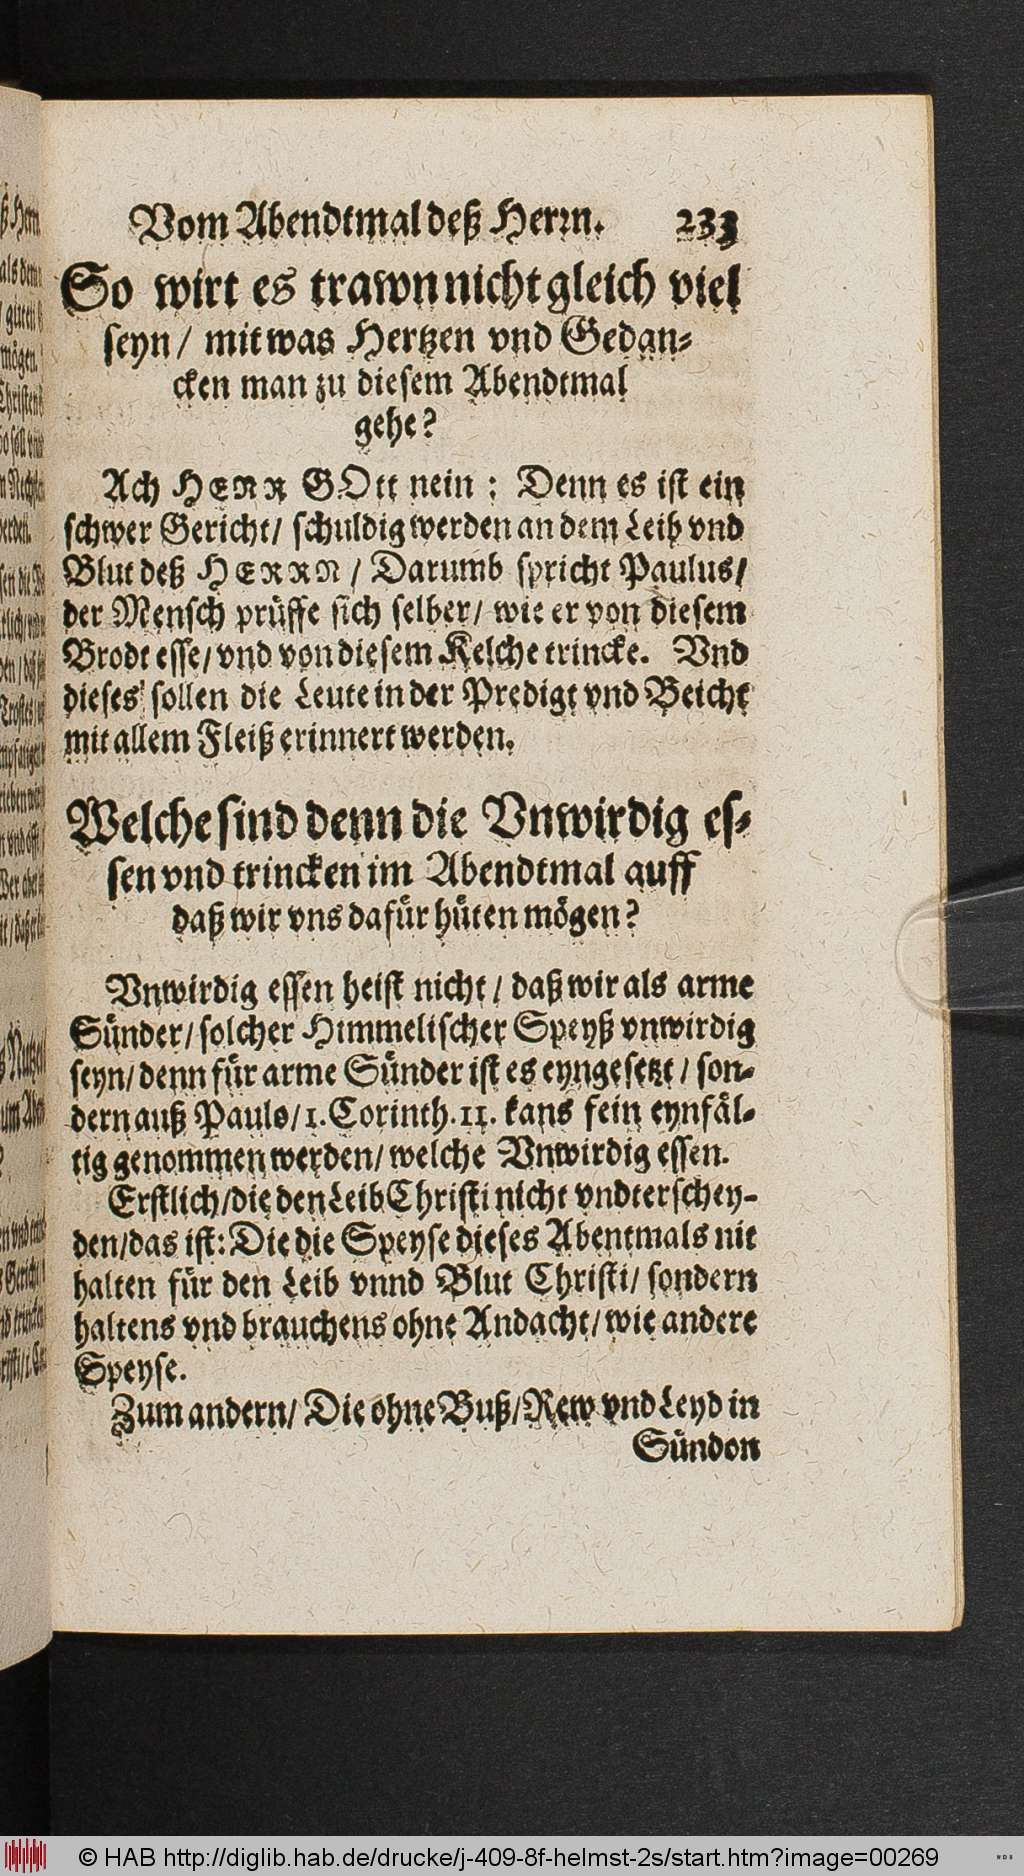 Vom Abendtmal deß Herrn. 233
So wirt es trawn nicht gleich viel
seyn / mit was Hertzen vnd Gedan⸗
cken man zu diesem Abendtmal
gehe?
Ach HERR GOtt nein : Denn es ist ein
schwer Gericht / schuldig werden an dem Leib vnd
Blut deß HERRN / Darumb spricht Paulus /
der Mensch prüffe sich selber / wie er von diesem
Brodt esse / vnd von diesem Kelche trincke. Vnd
dieses sollen die Leute in der Predigt vnd Beicht
mit allem Fleiß erinnert werden.
Welche sind denn die Vnwirdig es⸗
sen vnd trincken im Abendtmal auff
daß wir vns dafür hüten mögen?
Vnwirdig essen heist nicht / daß wir als arme
Sünder / solcher Himmelischer Speyß vnwirdig
seyn / denn für arme Sünder ist es eyngesetzt / son⸗
dern auß Paulo / 1. Corinth. 11. kans fein eynfäl⸗
tig genommen werden / welche Vnwirdig essen.
Erstlich / die den Leib Christi nicht vndterschey⸗
den / das ist: Die die Speyse dieses Abentmals nit
halten für den Leib vnnd Blut Christi / sondern
haltens vnd brauchens ohne Andacht / wie andere
Speyse.
Zum andern / Die ohne Buß / Rew vnd Leyd in
Sündon
© HAB http://diglib.hab.de/drucke/j-409-8f-helmst-2s/start.htm?image=00269